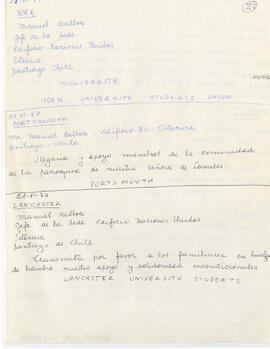 YORK
29
Manuel Balboa
Jefe de la Sede
Edificio Naciones Unidas
Santiago Chile
SOLIDARITE
YORK UNIVERSITY STUDENTS UNION
PORTSMOUTH
Mr. Manuel Balboa - Edificio NU. Vitacura
Santiago - Chile
apoyo miembros de la comunidad
de la parroquia de nuestra señora de Lourdes
PORTSMOUTH
LANCASTER
Manuel Balboa
Jefe de la Sede Edificio Naciones Unidas
Santiago de Chile
Transmita por favor a los familiares en huelga
de hambre nuestro apoyo y solidaridad incondicionales
LANCASTER UNIVERSITY STUDENTS